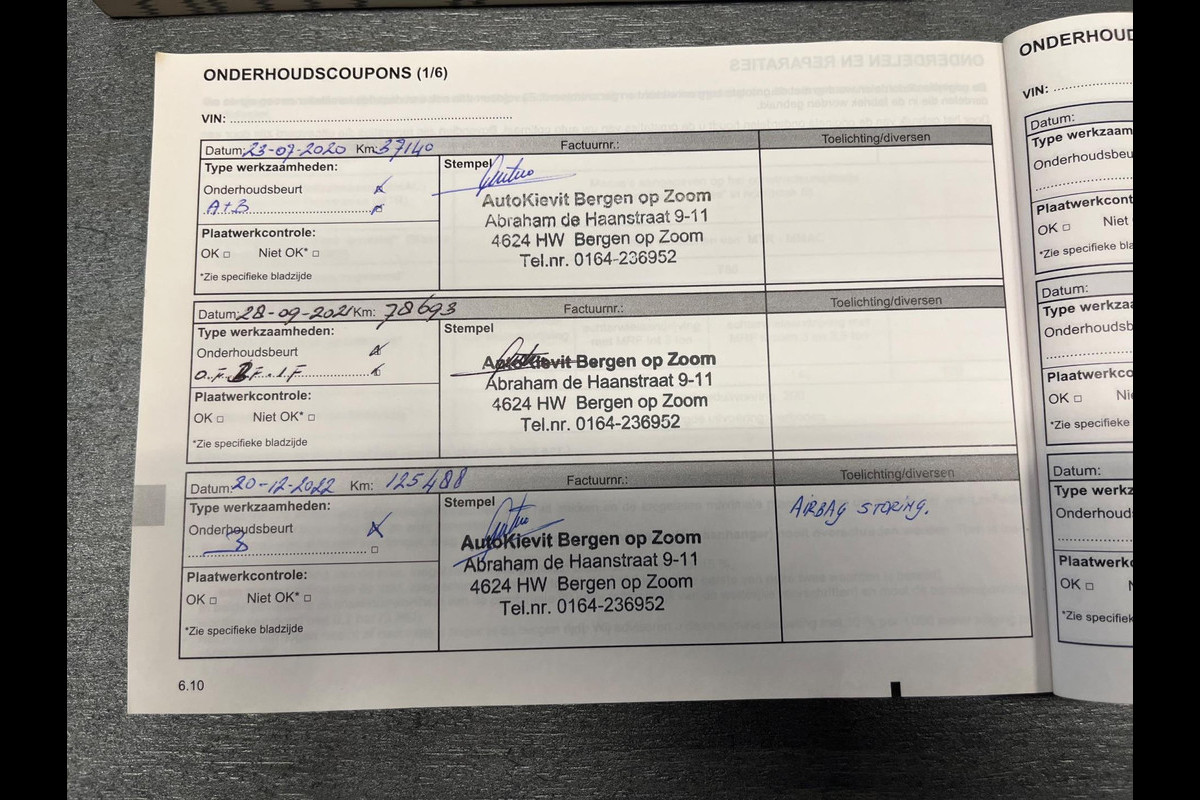 ONDERHOUDSCOUPONS (1/6)
VIN:
Datum: 23-07-2020 Km: 37140 Factuurnr.: Toelichting/diversen
Type werkzaamheden:
Stempel
Onderhoudsbeurt
A+B
AutoKievit Bergen op Zoom
Abraham de Haanstraat 9-11
4624 HW Bergen op Zoom
Tel.nr. 0164-236952
Plaatwerkcontrole:
OK □ Niet OK* □
*Zie specifieke bladzijde
Datum: 28-09-2021 Km: 78693 Factuurnr.: Toelichting/diversen
Type werkzaamheden:
Stempel
Onderhoudsbeurt
AutoKievit Bergen op Zoom
Abraham de Haanstraat 9-11
4624 HW Bergen op Zoom
Tel.nr. 0164-236952
Plaatwerkcontrole:
OK □ Niet OK* □
*Zie specifieke bladzijde
Datum: 20-12-2022 Km: 125488 Factuurnr.: Toelichting/diversen
Type werkzaamheden:
Stempel
AIRBAG STORING.
Onderhoudsbeurt
AutoKievit Bergen op Zoom
Abraham de Haanstraat 9-11
4624 HW Bergen op Zoom
Tel.nr. 0164-236952
Plaatwerkcontrole:
OK □ Niet OK* □
*Zie specifieke bladzijde
6.10
ONDERHOUD
VIN:
Datum:
Type werkzaam
Onderhoudsbeu
Plaatwerkcont
OK □ Niet
*Zie specifieke bla
Datum:
Type werkza
Onderhoudsb
Plaatwerkco
OK □ Ni
*Zie specifieke
Datum:
Type werkz
Onderhouds
Plaatwerk
OK □
*Zie specifiek